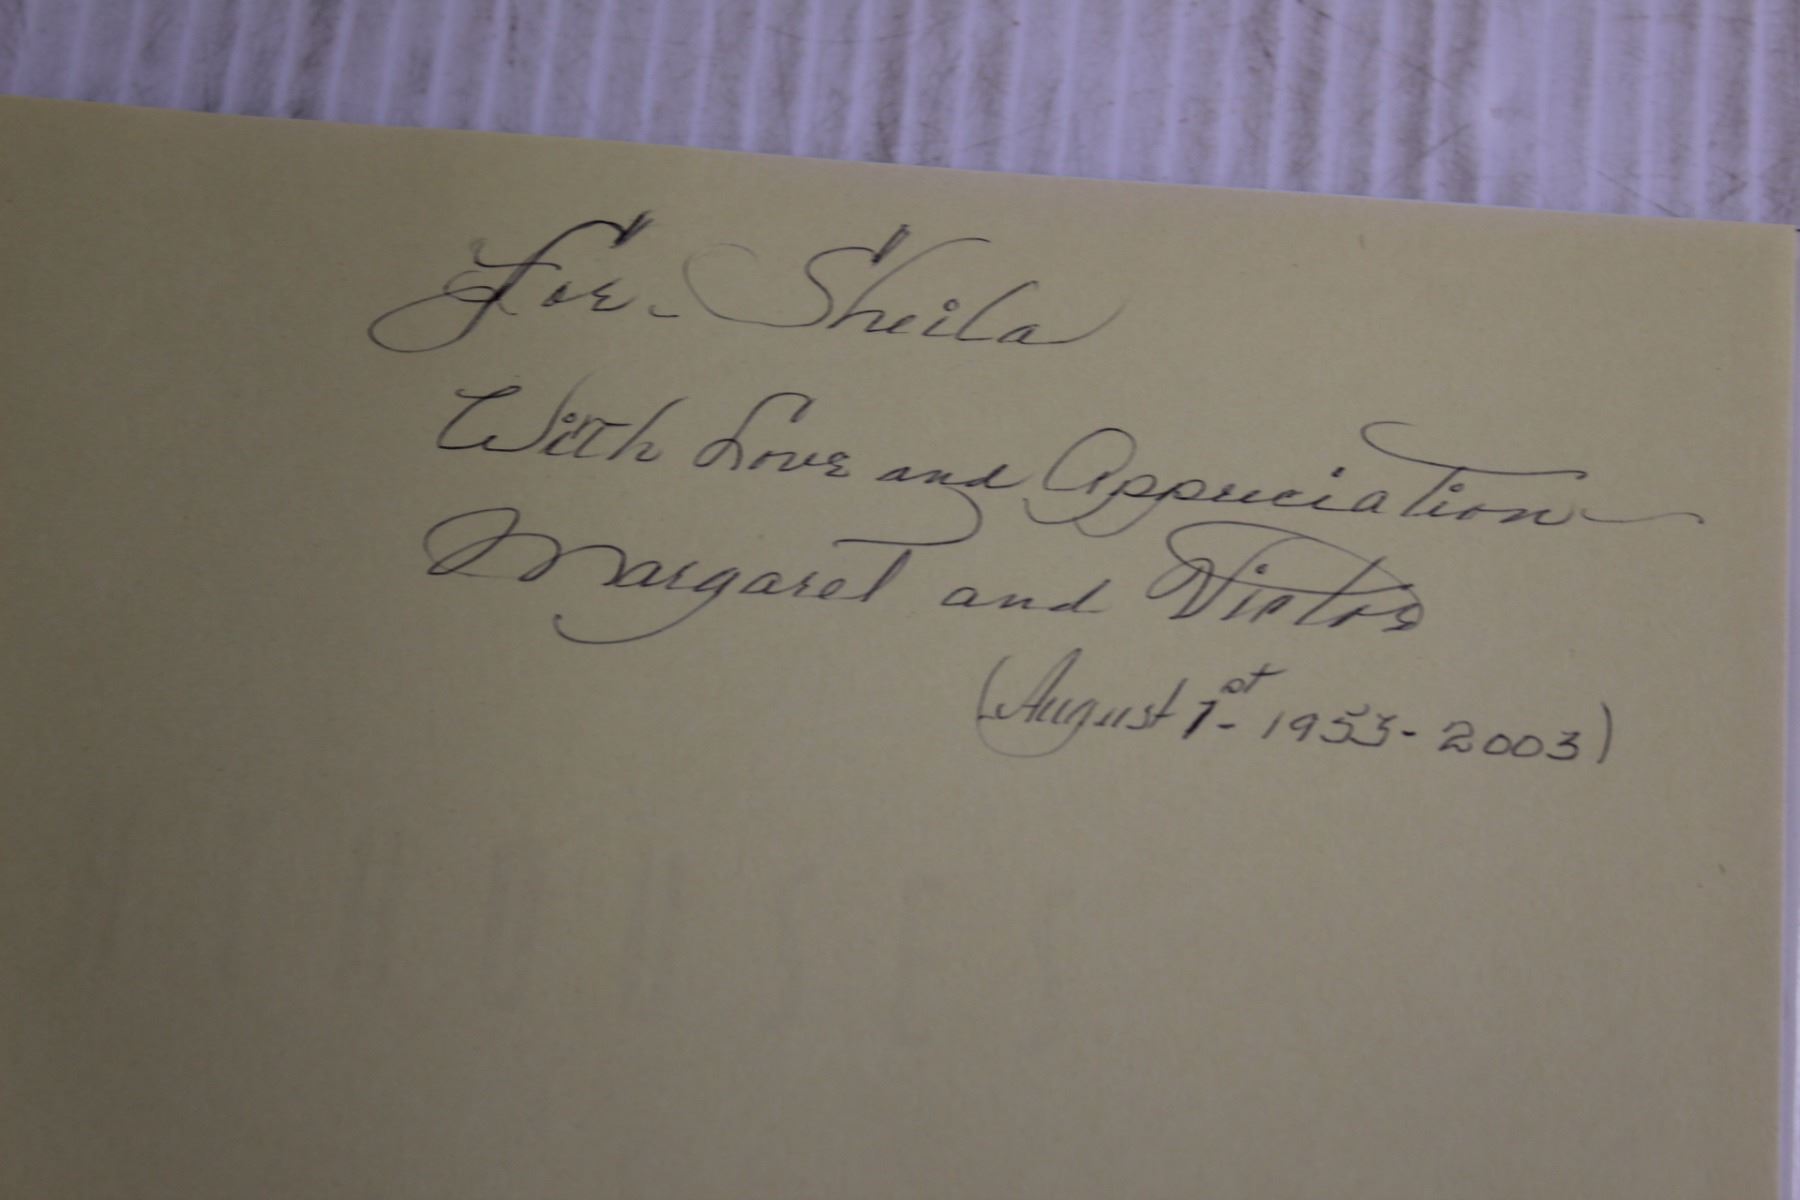 For. Sheila
With Love and Appreciation
Margaret and Victor
(August 1st - 1953 - 2003)